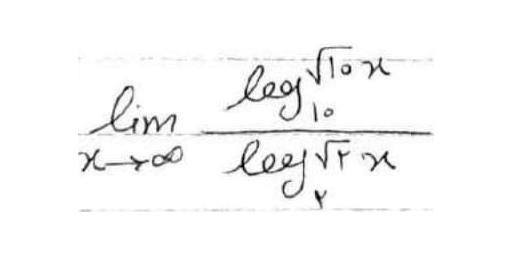 lim x→∞ log₁₀ √10 x / log₂ √2 x